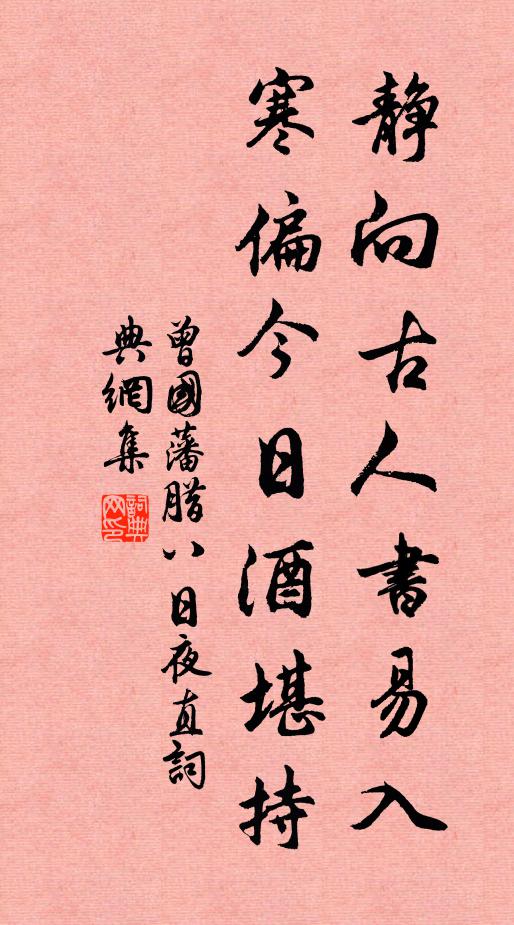 静向古人書易入
寒偏今日酒堪持
曾國藩腊八日夜直詞
典網集
詞典
网印